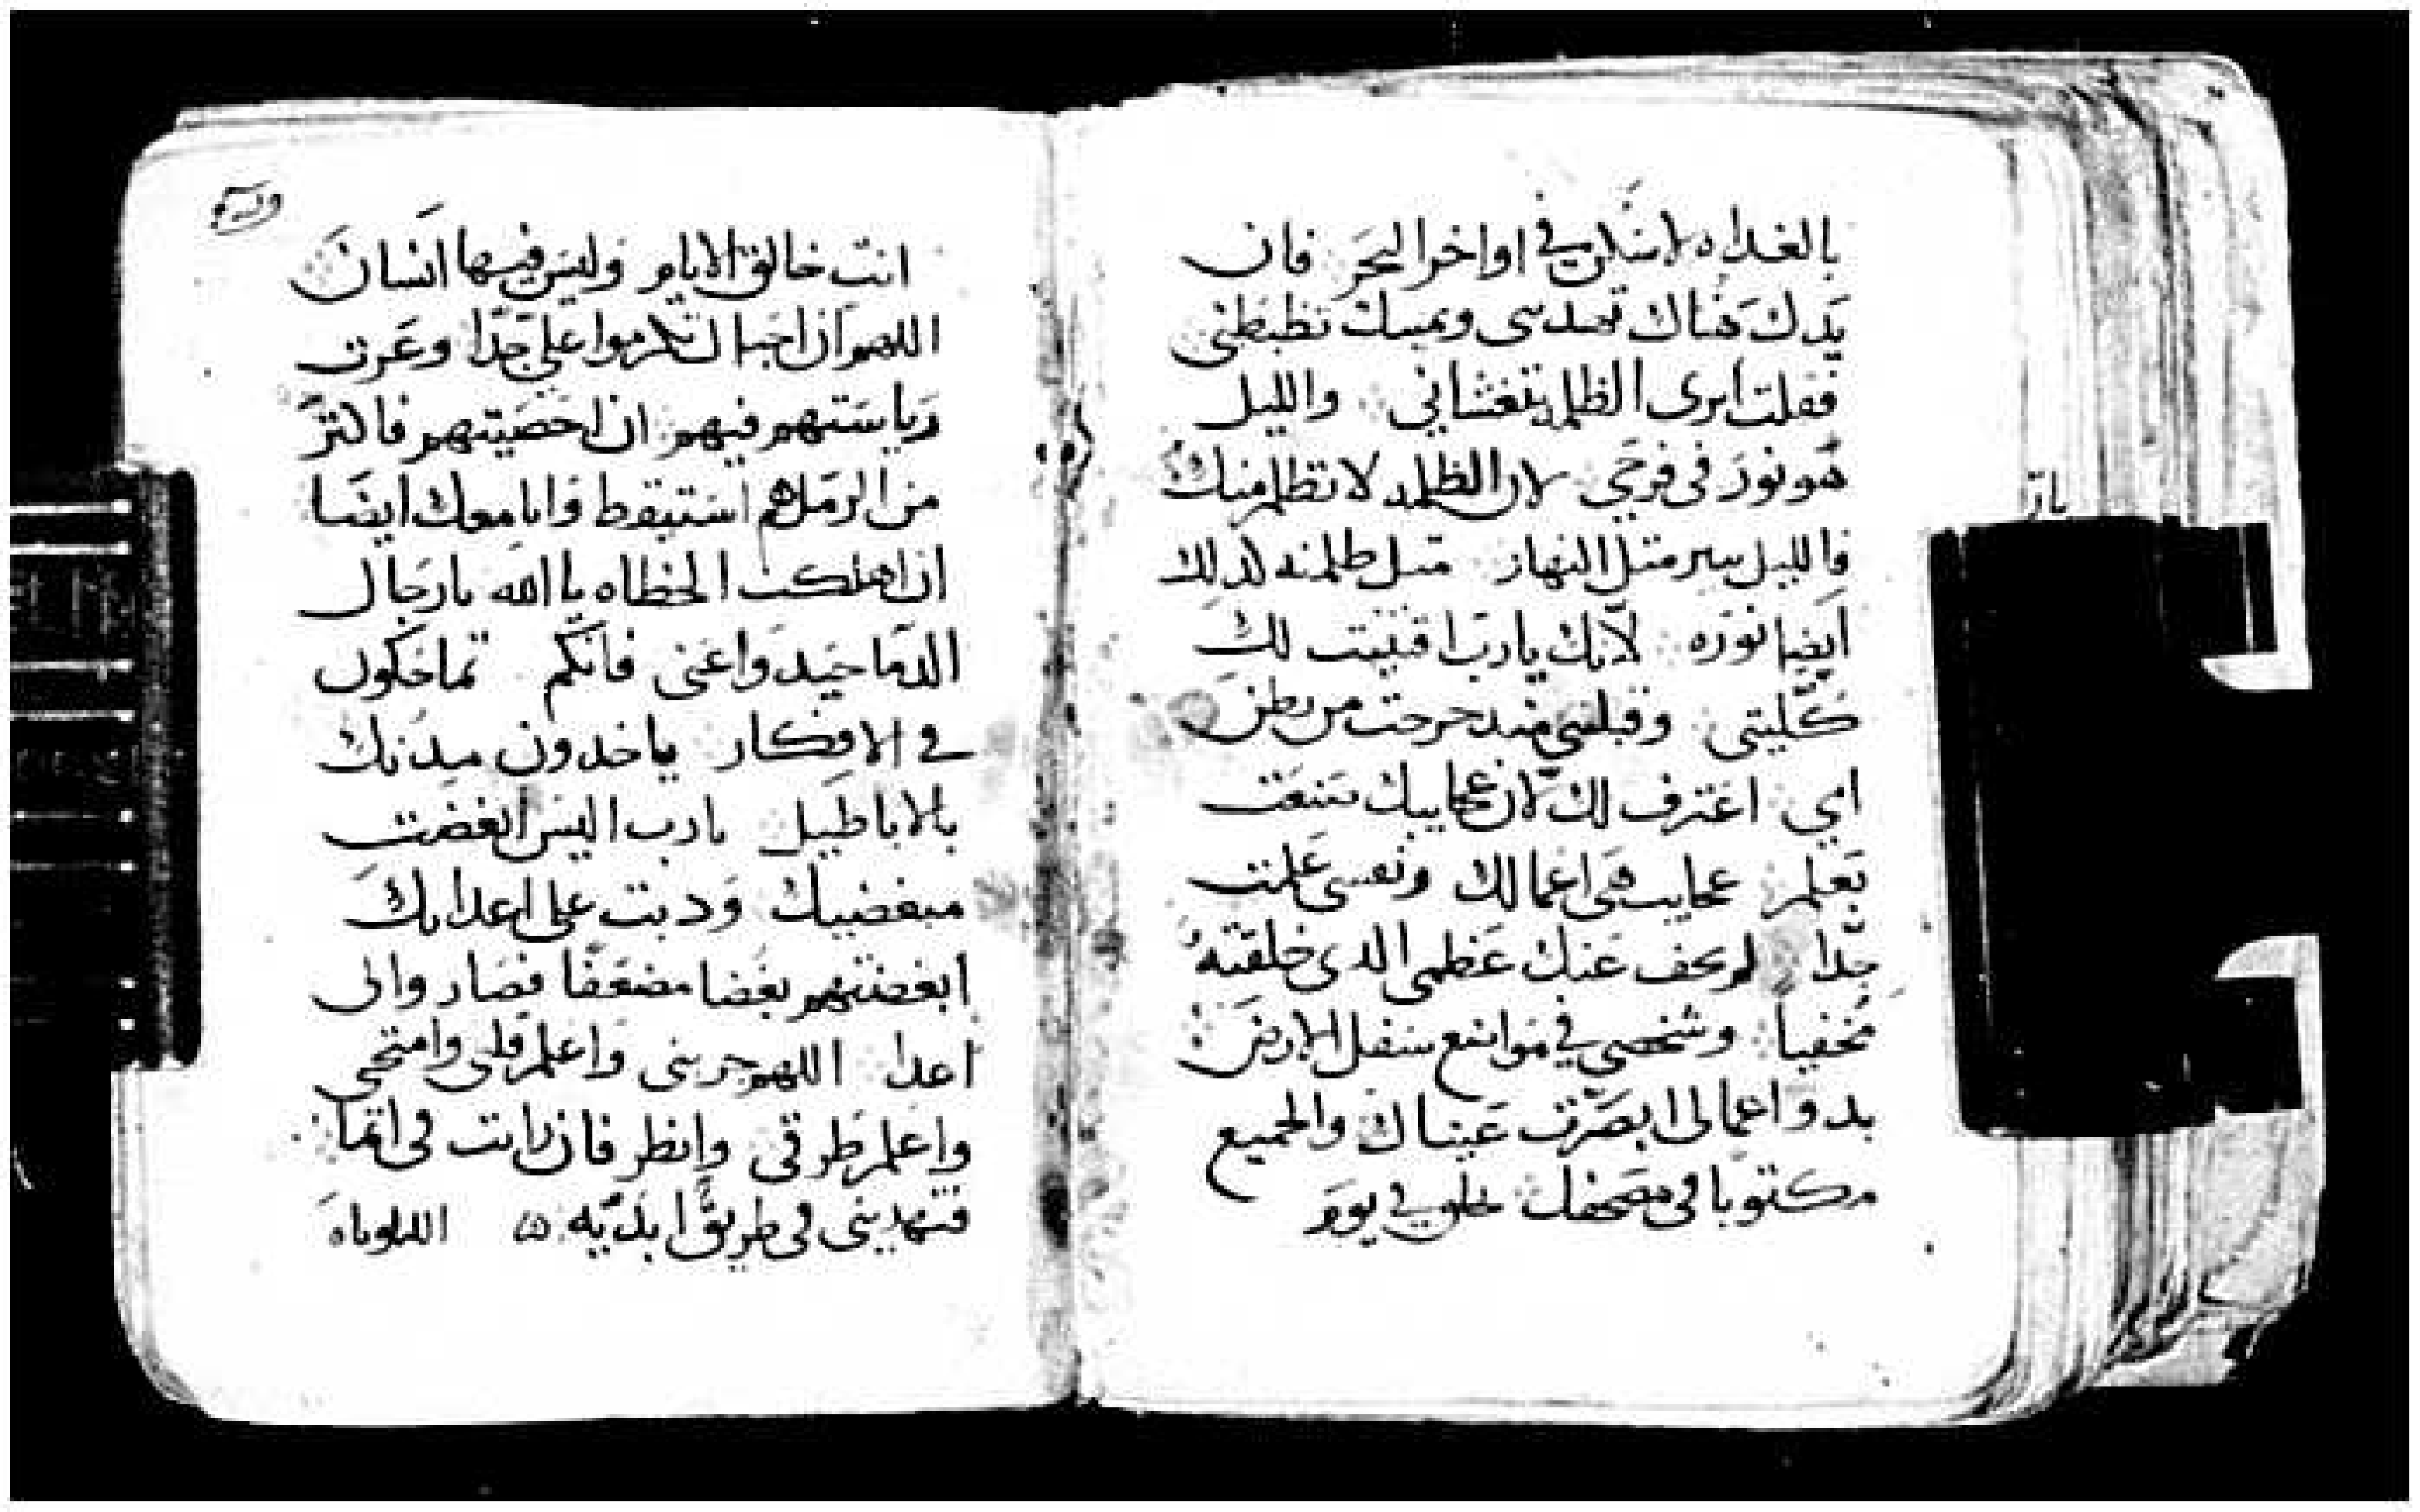 بالغداه لاسكن في اواخر البحر فان
يدك هناك تهديني ويمينك تظبطني
فقلت اىرى الظلمه تغشاني والليل
هو نور في فرحي لان الظلمه لا تظلم منك
والليل ينير متل النهار متل ظلمته كدلك
ايضا نوره لانك يارب اقتنيت لك
كليتي وقبلتني مند خرجت من بطن
امي اعترف لك لان عجايبك تنعت
تعلم عجايب في اعمالك ونفسي علمت
جدا لم يخف عنك عظمي الدى خلقته
مخفياً وشخصي في مواضع سفل الارض
بدو اعمالى ابصرت عيناك والجميع
مكتوبا في مصحفك خلوني يوم
انت خالق الايام وليس فيها انسان
اللهم ان احباك تكرموا علي جدا وعزت
رياستهم فيهم ان احصيتهم فاكتر
من الرمل هم استيقظ وانا معك ايضا
ان اهلكت الخطاه يا الله يا رجال
الدما حيدوا عني فانكم تماحكون
في الافكار ياخدون مدنك
بالاباطيل يارب اليس ابغضت
مبغضيك ودبت على اعدايك
ابغضتهم بغضا مضعفًا فصاروا لى
اعدا اللهم جربنى واعلم قلبي وامتحني
واعلم طرقي وانظر فان رايت في اتما
فتهديني في طريق ابديه الليلوياه